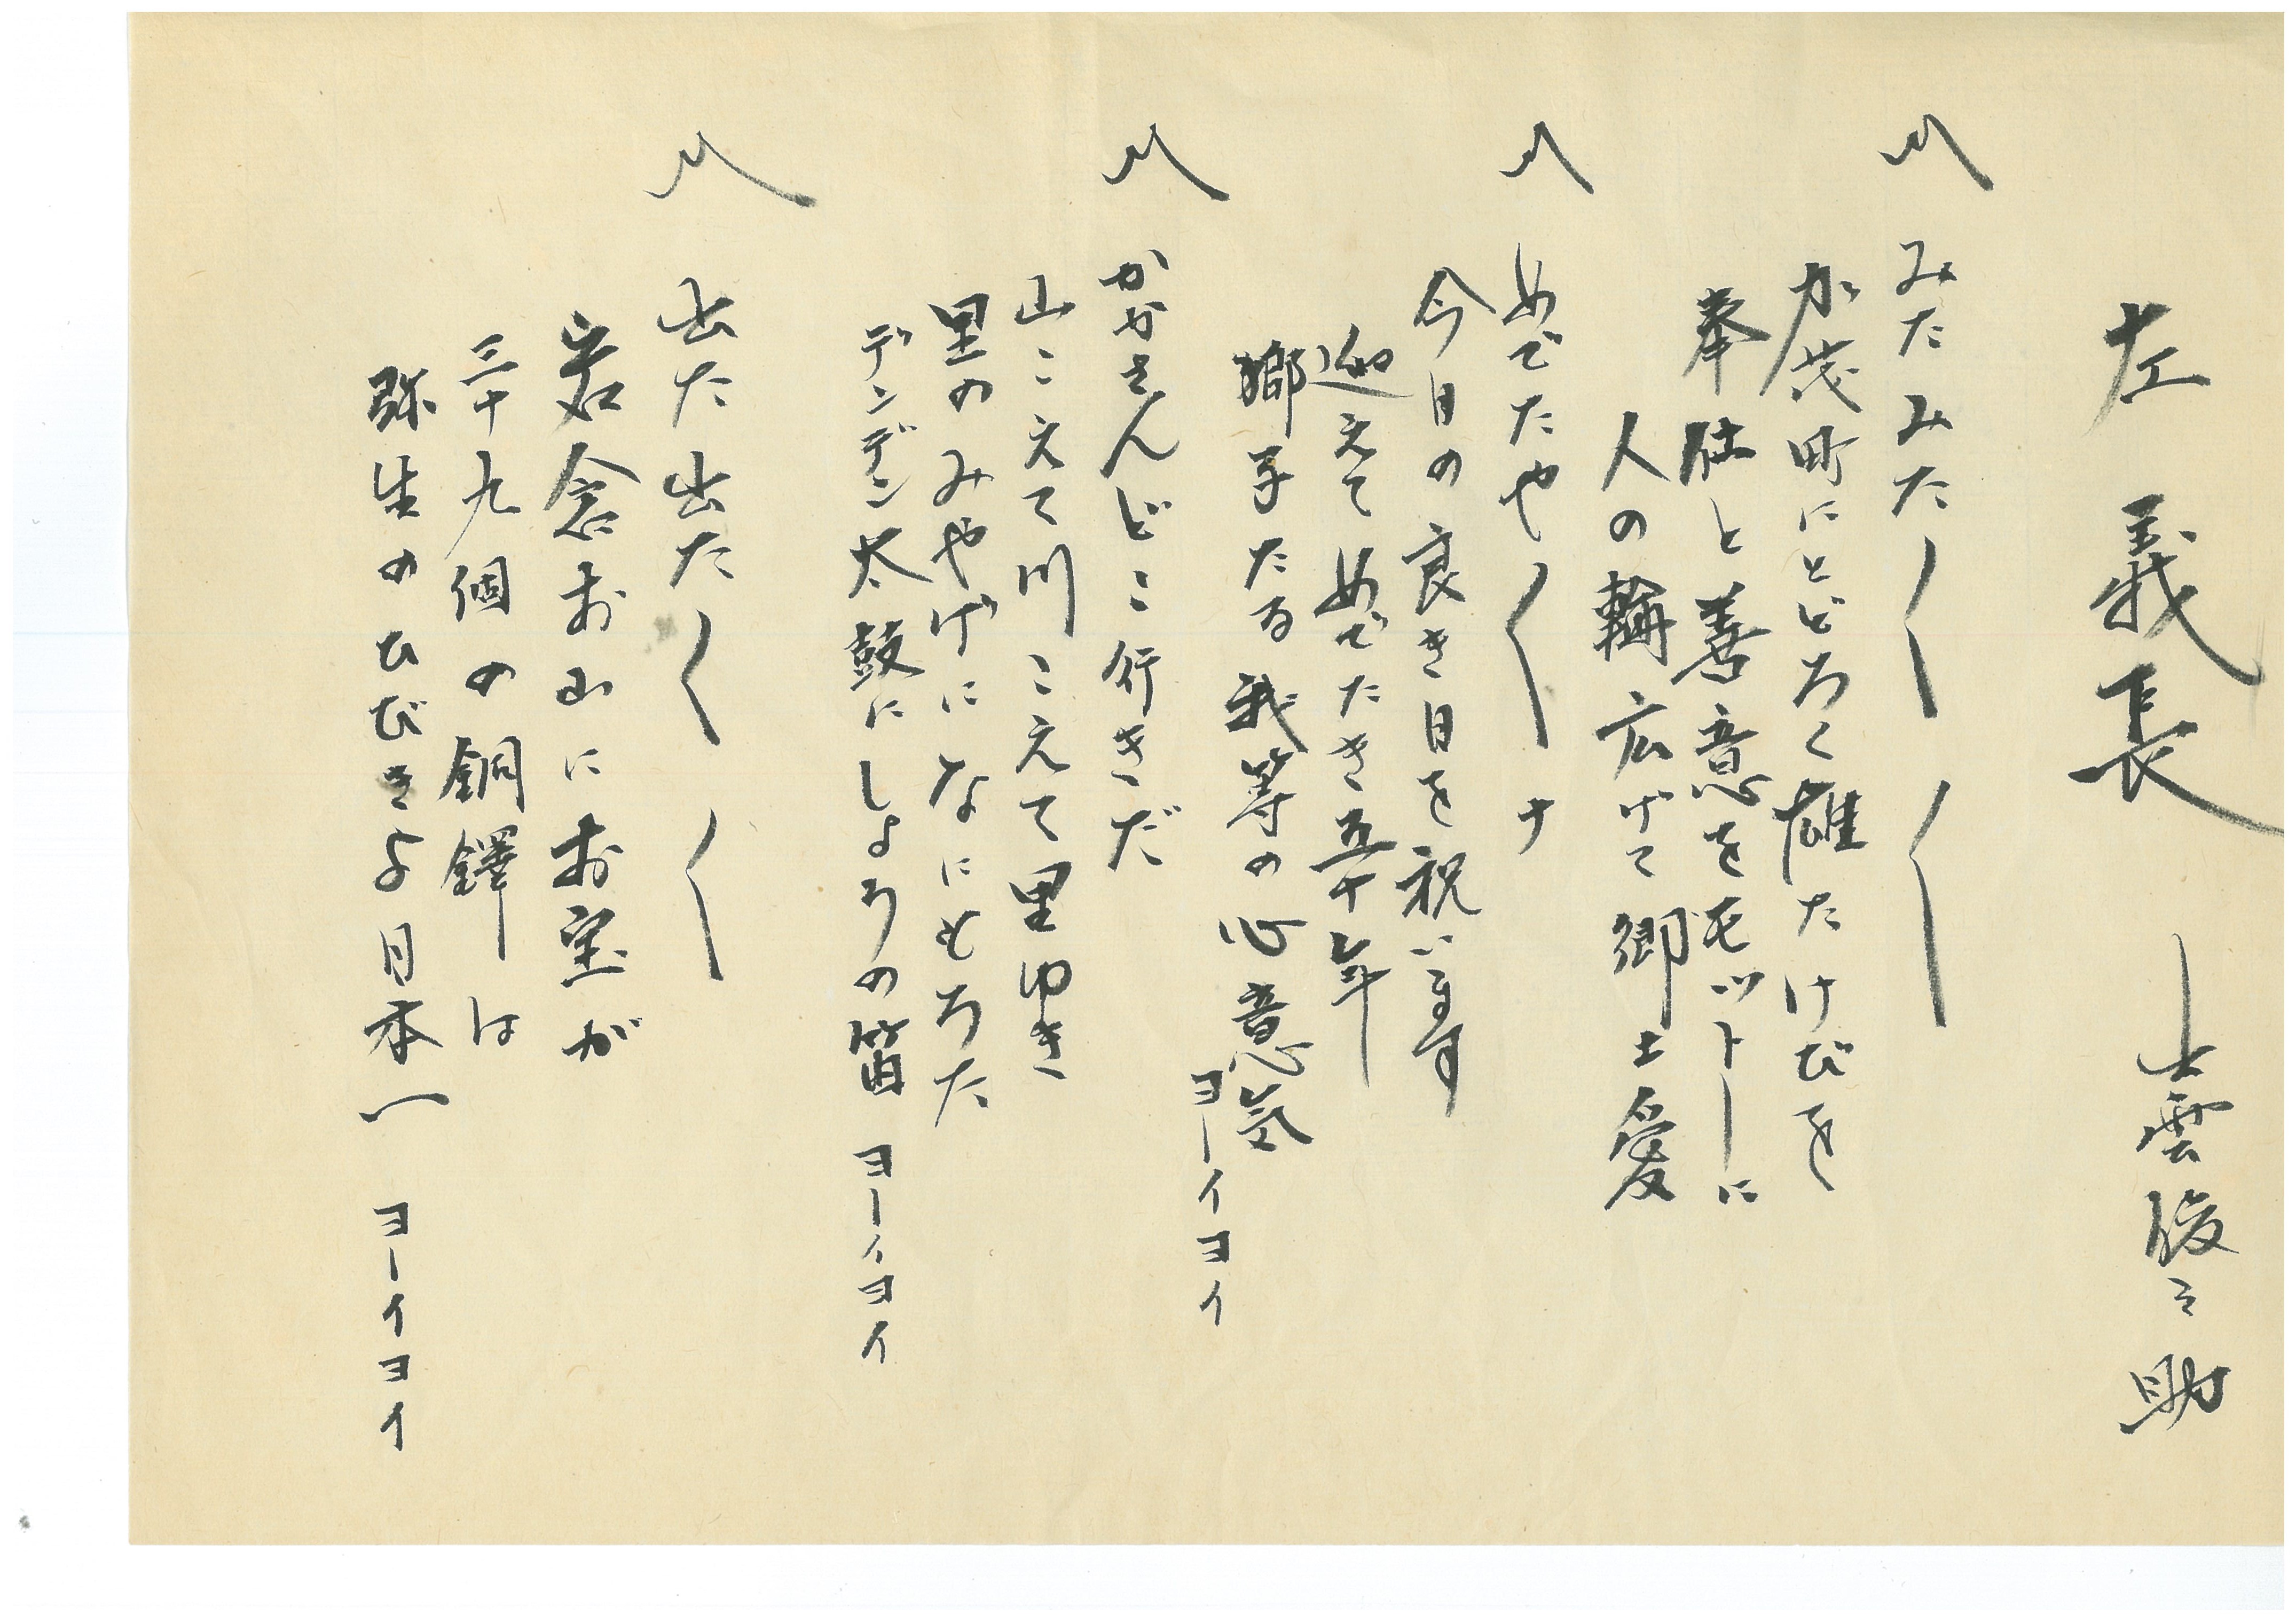 左義長　出雲俊之助
〽みたみた〱〱
加茂町にとどろく雄たけびを
奉仕と善意をモットーに
人の輪広げて郷土愛
〽めでたや〱ナ
今日の良き日を祝います
迎えてめでたき五十年
獅子たる我等の心意気　ヨーイヨイ
〽かかさんどこ行きだ
山こえて川こえて里ゆき
里のみやげになにもろた
デンデン太鼓にしょうの笛　ヨーイヨイ
〽出た出た〱〱
岩倉お山にお宝が
三十九個の銅鐸は
弥生のひびきよ日本一　ヨーイヨイ